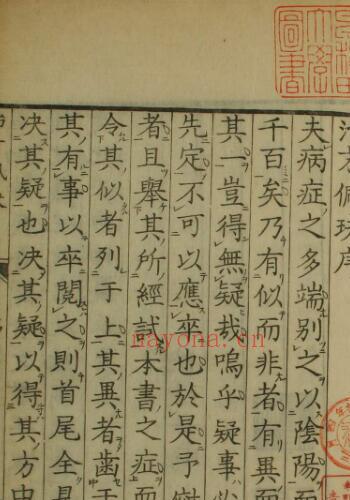 方佩玩序
夫病症之多端別之以陰陽而
千百矣乃有似而非者有異而
其一豈得無疑哉嗚乎疑事
先定不可以應卒也於是予
者且舉其所經試本書之症而
令其似者列于上其異者齒于
其有事以卒閱之則首尾全具
决其疑也决其疑以得其方中
圖書
nayona.cn